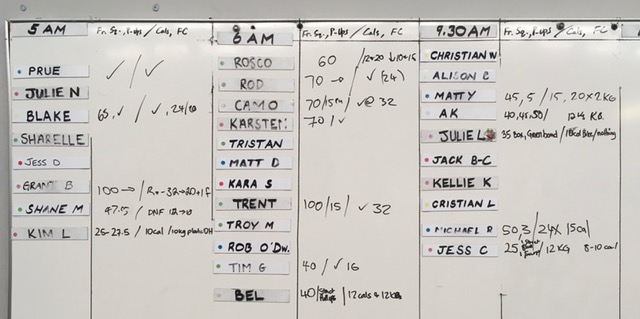 5 AM Fr. Sq., P-ups / Cals, FC
PRUE ✓ / ✓
JULIE N
BLAKE 65, ✓ / ✓, 24/
SHARELLE
JESS D
GRANT B 100 → /
SHANE M 47.5 / DNF
KIM L 25-27.5 / 10cal / 10kg plate OH
6 AM Fr. Sq., P-ups / Cals, FC
ROSCO 60 / 12+20
ROD 70 → ✓ (24)
CAMO 70/15 / ✓ @ 32
KARSTEN 70 / ✓
TRISTAN
MATT D
KARA S
TRENT 100/15 / ✓ 32
TROY M
ROB O'DW.
TIM G 40 / ✓ 16
BEL 40 / 12 cals + 12kg
9.30 AM Fr. Sq., P-ups / Cals, FC
CHRISTIAN W
ALISON C
MATTY 45, 5 / 15, 20x2KG
AK 40, 45, 50 / 12 KG.
JULIE L 35 Box, Green band / Cal Bike / nothing
JACK B-C
KELLIE K
CRISTIAN L
MICHAEL R 50, 3 / 24 x 15cal
JESS C 25 / 12KG 8-10 cal